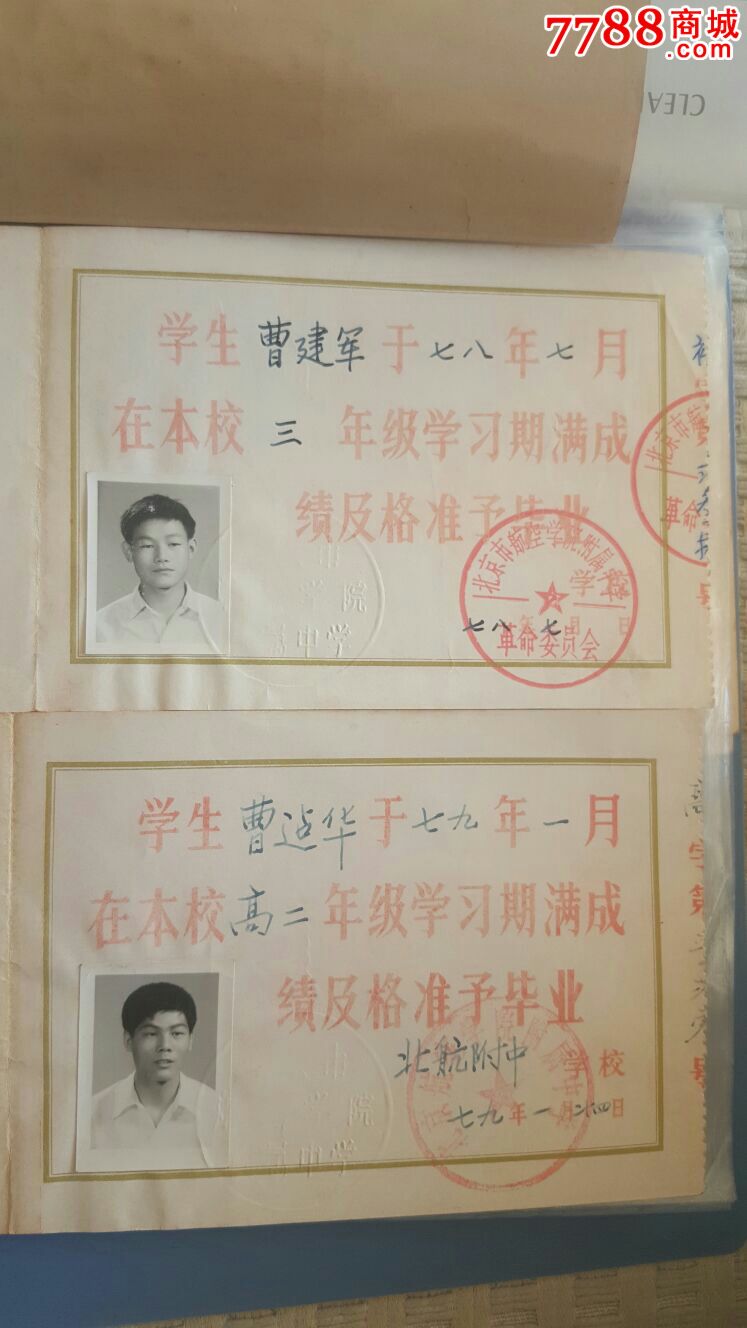 7788商城
.com
CLEA
学生曹建军于七八年七月
在本校三年级学习期满成
绩及格准予毕业
北京市航空学院附属中学
学校
七八年七月日
革命委员会
革命
中
学院
中学
学生曹适华于七九年一月
在本校高二年级学习期满成
绩及格准予毕业
北航附中学校
七九年一月二四日
中
学院
中学
高
字
第